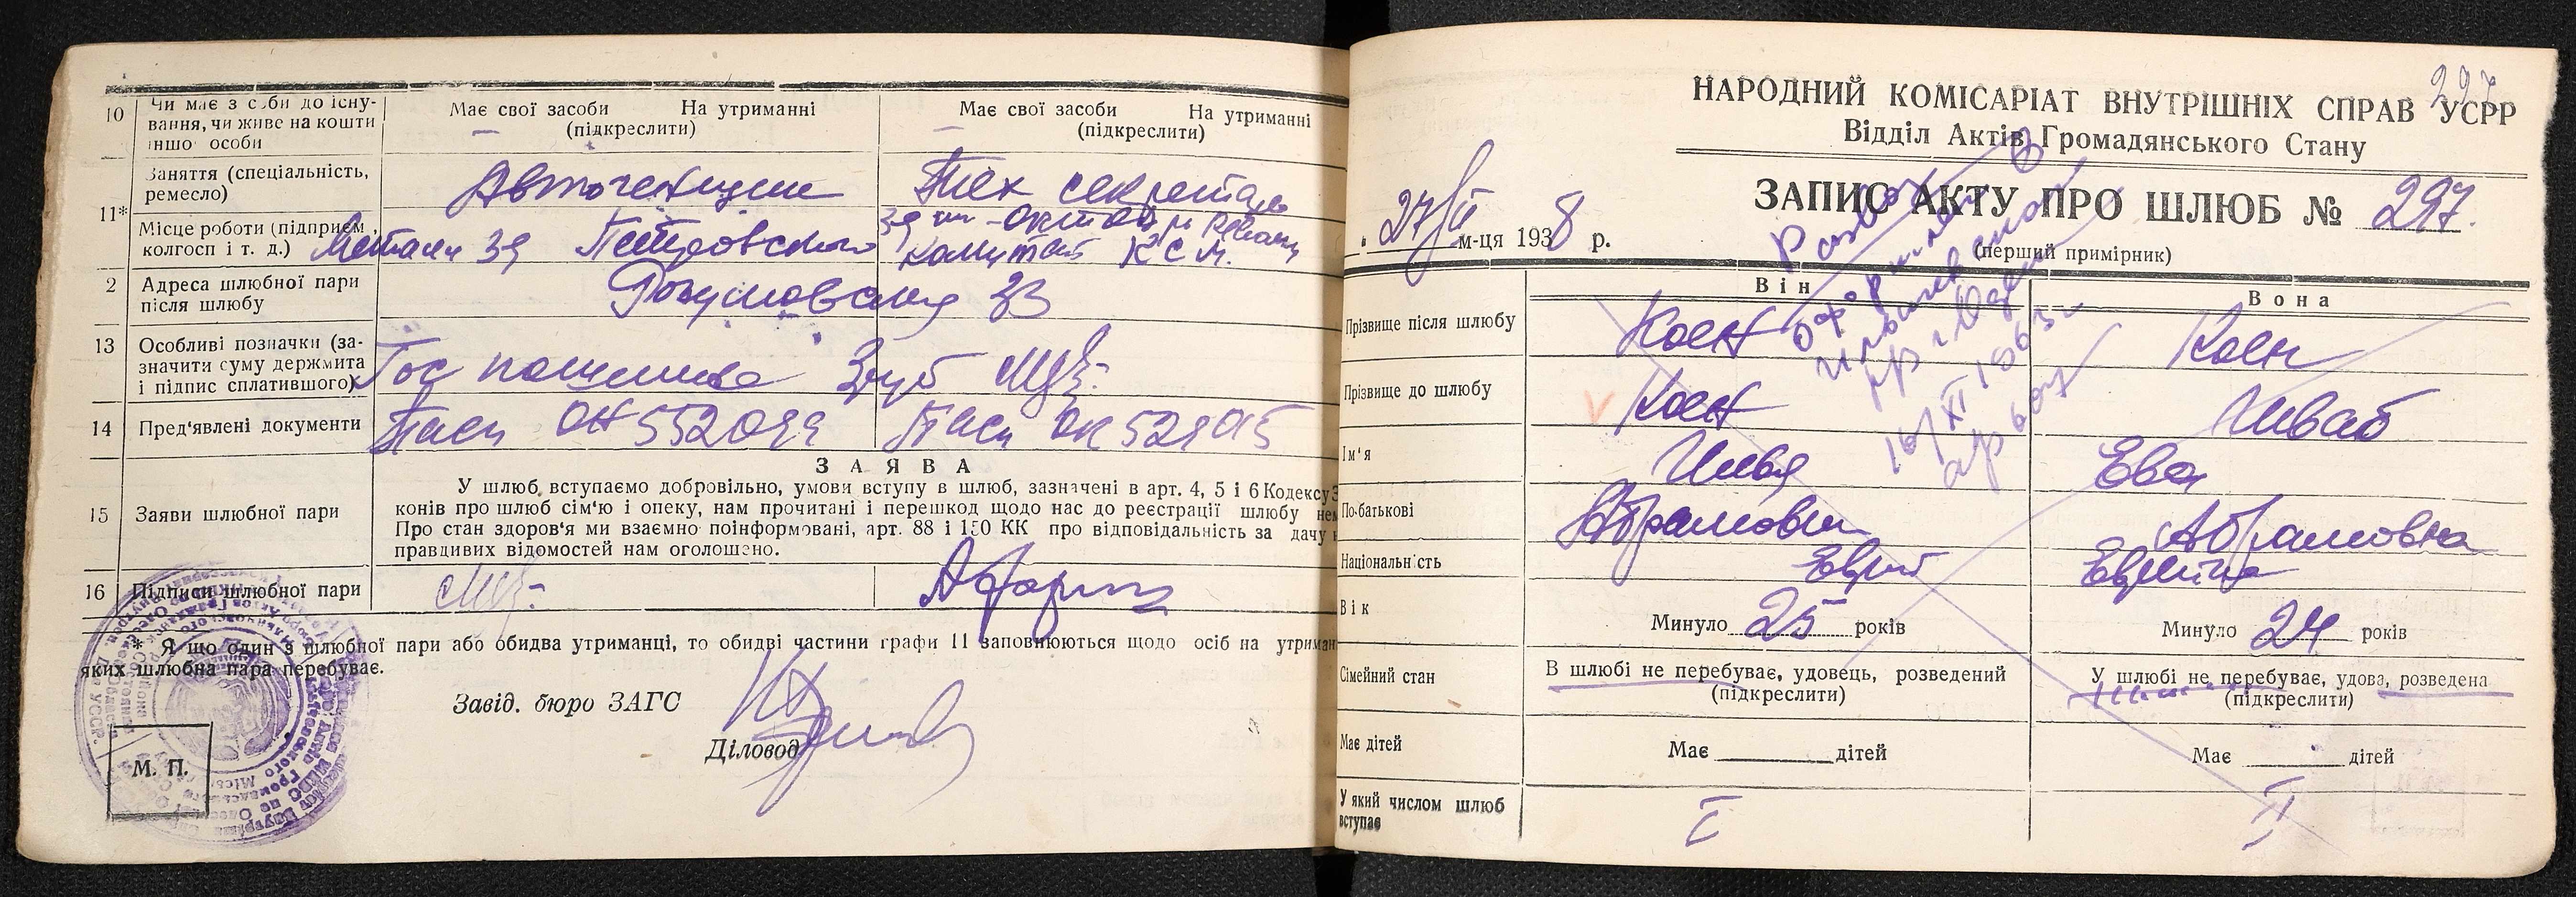 10 Чи має з соби до існування, чи живе на кошти іншої особи
Має свої засоби На утриманні
(підкреслити)
Має свої засоби На утриманні
(підкреслити)
11* Заняття (спеціальність, ремесло)
Тех секретарь
Місце роботи (підприєм., колгосп і т. д.)
Петровского
Комитет КСМ.
2 Адреса шлюбної пари після шлюбу
33
13 Особливі позначки (зазначити суму держмита і підпис сплатившого)
Гос пошлина 3 руб
14 Пред'явлені документи
Пасп ОН 552099
Пасп ОК 529015
ЗАЯВА
15 Заяви шлюбної пари
У шлюб вступаємо добровільно, умови вступу в шлюб, зазначені в арт. 4, 5 і 6 Кодексу З
конів про шлюб сім'ю і опеку, нам прочитані і перешкод щодо нас до реєстрації шлюбу нем
Про стан здоров'я ми взаємно поінформовані, арт. 88 і 150 КК про відповідальність за дачу н
правдивих відомостей нам оголошено.
16 Підписи шлюбної пари
* Я що один з шлюбної пари або обидва утриманці, то обидві частини графи 11 заповнюються щодо осіб на утриман
яких шлюбна пара перебуває.
Завід. бюро ЗАГС
Діловод
М. П.
297
НАРОДНИЙ КОМІСАРІАТ ВНУТРІШНІХ СПРАВ УСРР
Відділ Актів Громадянського Стану
ЗАПИС АКТУ ПРО ШЛЮБ № 297.
(перший примірник)
27/II м-ця 1938 р.
Развод
оформлен
16/XI 1963 г
Він
Вона
Прізвище після шлюбу
Коен
Коен
Прізвище до шлюбу
Коен
Шваб
Ім'я
Илья
Ева
По-батькові
Абрамович
Абрамовна
Національність
Еврей
Еврейка
Вік
Минуло 25 років
Минуло 24 років
Сімейний стан
В шлюбі не перебуває, удовець, розведений
(підкреслити)
У шлюбі не перебуває, удова, розведена
(підкреслити)
Має дітей
Має дітей
Має дітей
У який числом шлюб вступає
I
II